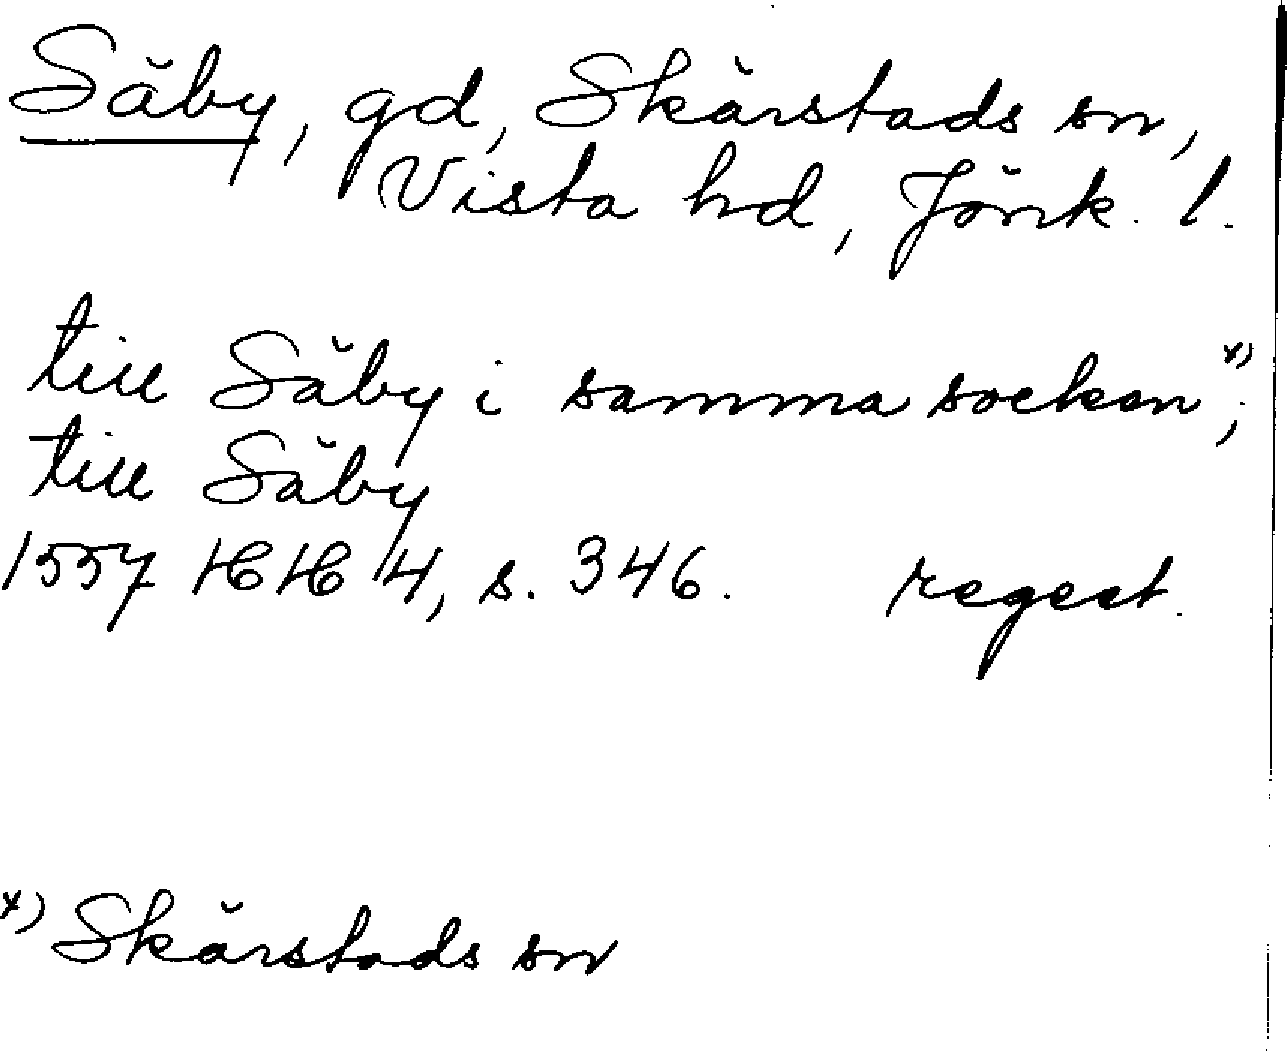 Säby, gd, Skärstads sn,
Vista hd, Jönk. l.
till Säby i samma socken x);
till Säby
1557 HH 4, s. 346. regest.
x) Skärstads sn